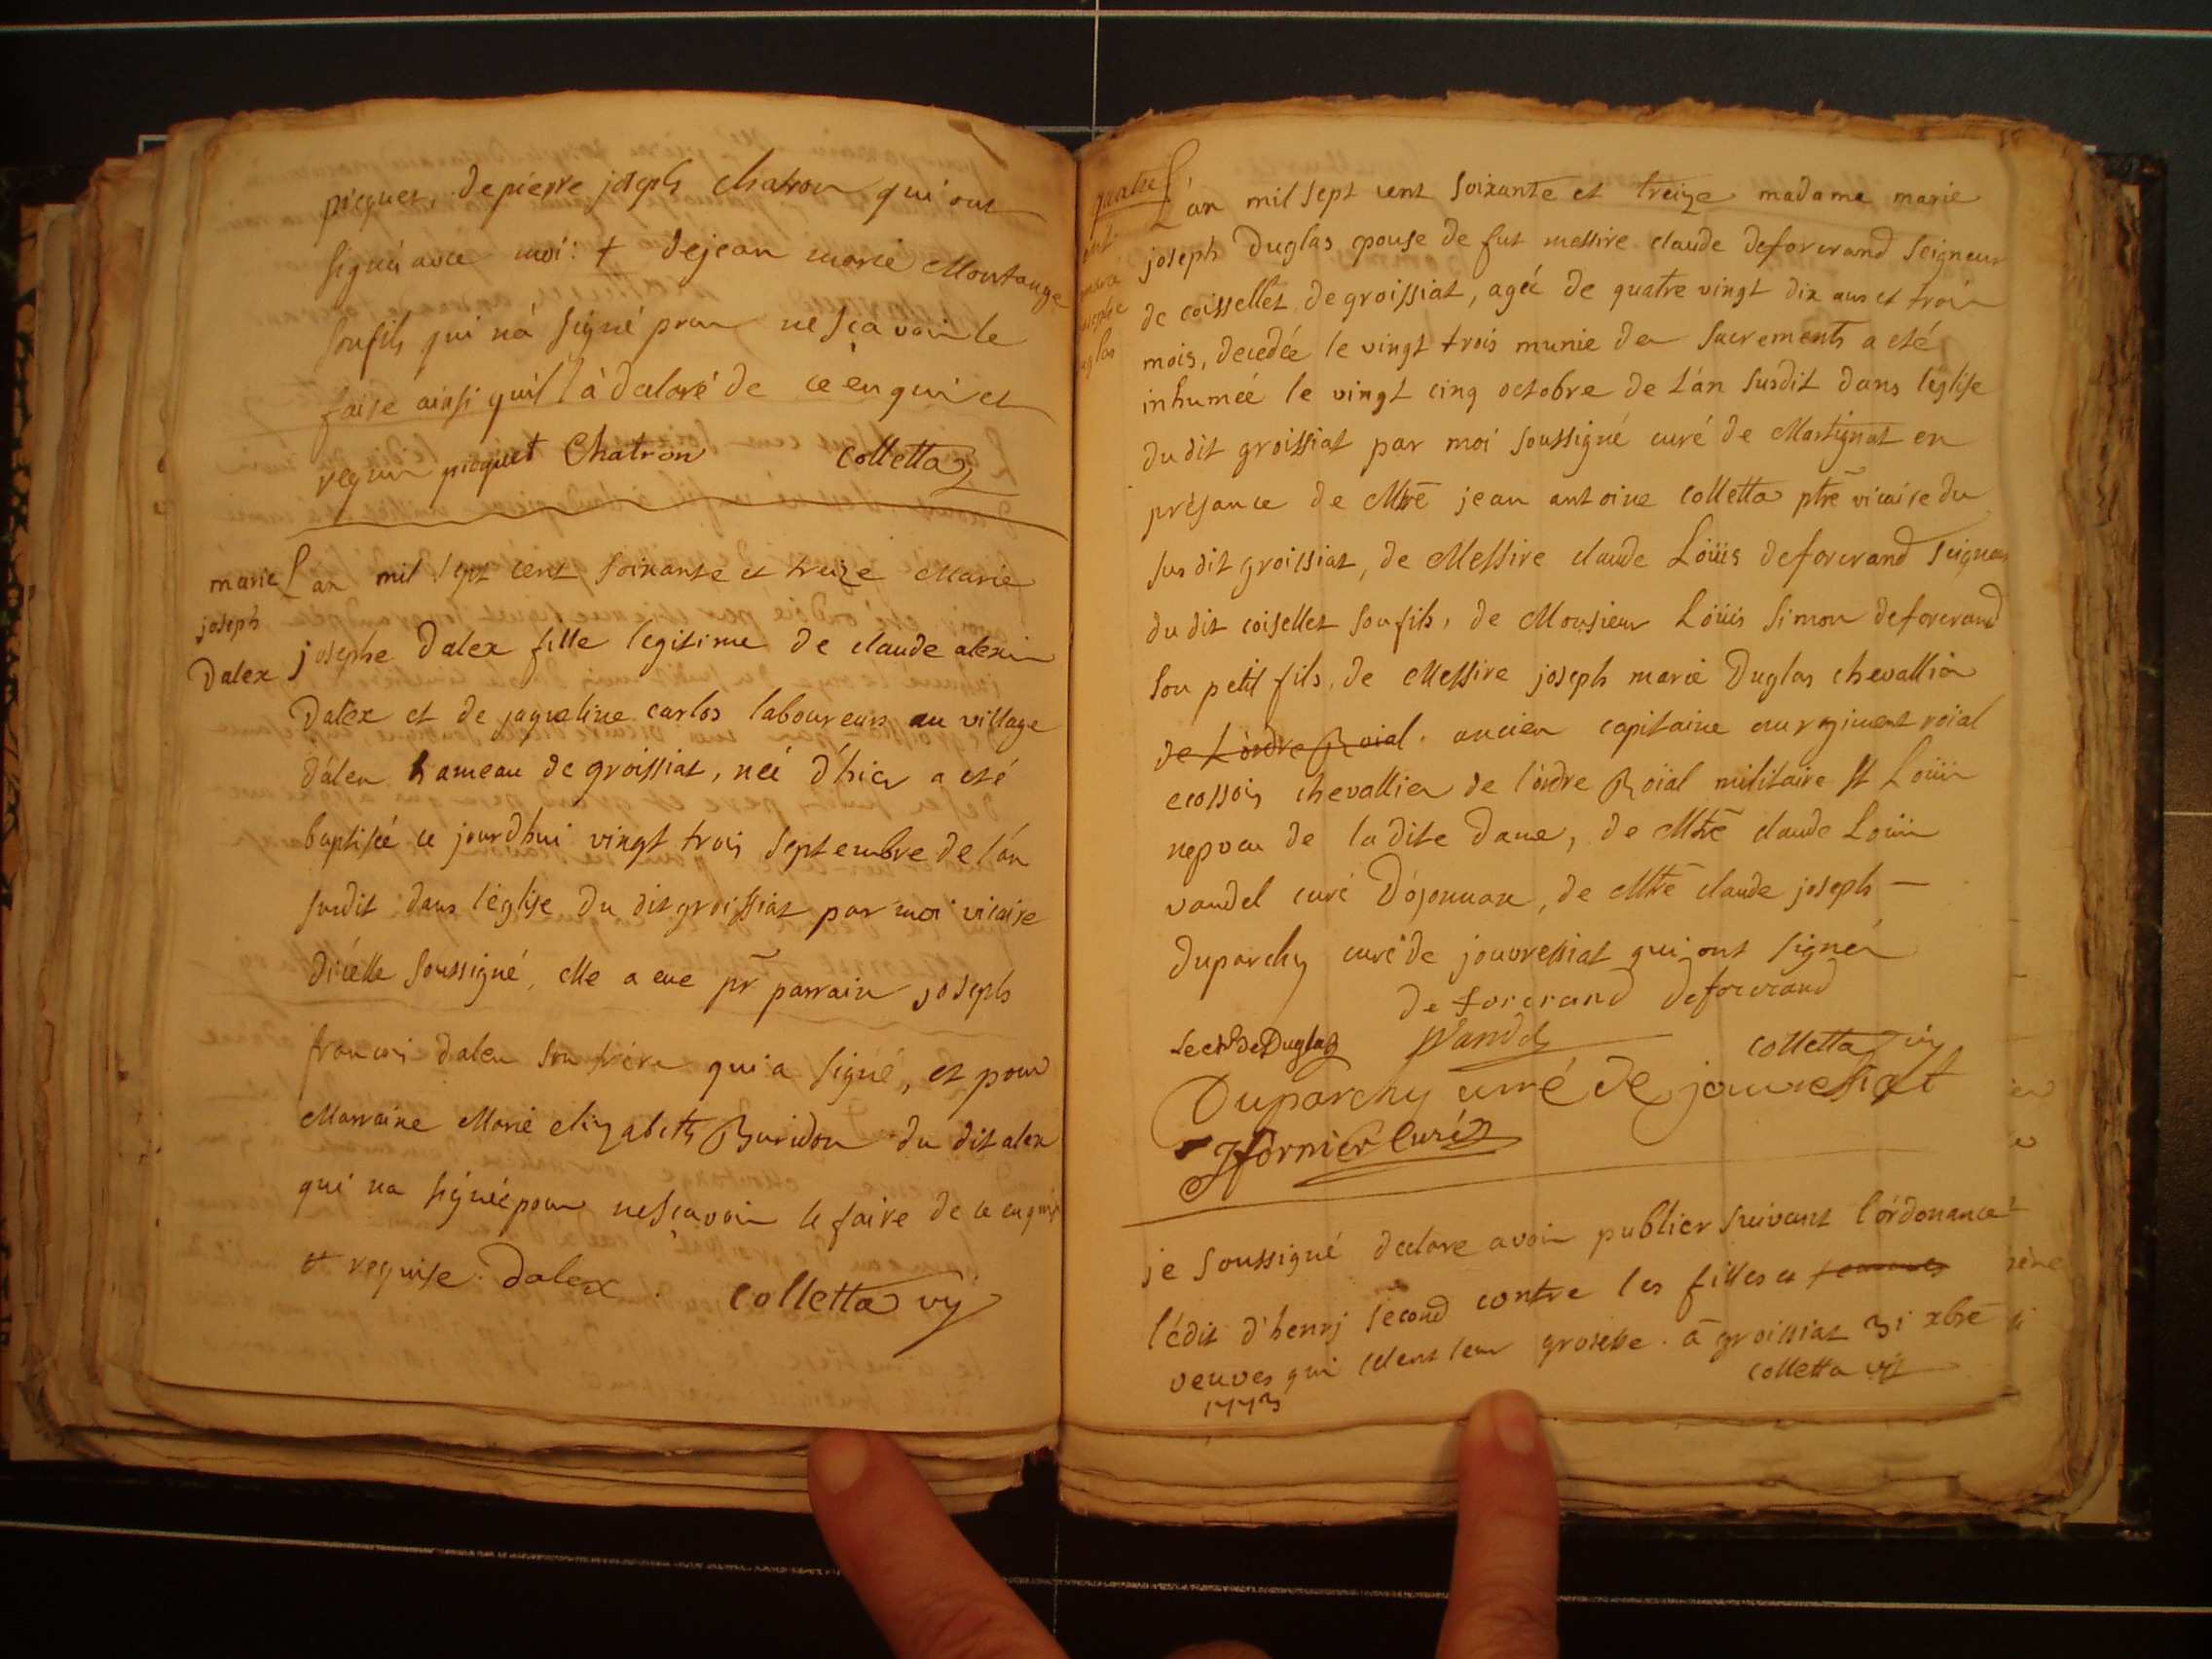 picquet, de pierre joseph chatron qui ont
signé avec moi: + de jean marie Montange
son fils qui n'a signé pour ne sçavoir le
faire ainsi qu'il l'à declaré de ce enquis et
requis picquet Chatron colletta
marie L'an mil sept cent soixante et treize Marie
joseph
Dalex josephe Dalex fille legitime de claude alexis
Dalex et de jaqueline carlos laboureurs au village
d'alex hameau de groissiat, née d'hier a eté
baptisée ce jourdhui vingt trois septembre de l'án
susdit dans léglise du dit groissiat par moi vicaire
dicélle soussigné, elle a eue pr parrain joseph
francois dalex son frére qui a signé, et pour
Marraine Marie elizabeth Buridon du dit alex
qui na signée pour ne sçavoir le faire de ce enquise
et requise. Dalex. colletta vy
L'án mil sept cent soixante et treize madame marie
joseph Duglas epouse de fut messire claude deforcrand seigneur
de coissellet de groissiat, agée de quatre vingt dix ans et trois
mois, decedée le vingt trois munie des sacrements a eté
inhumée le vingt cinq octobre de l'án susdit dans léglise
du dit groissiat par moi soussigné curé de Martignat en
présance de Mtre jean antoine colletta ptre vicaire du
susdit groissiat, de Messire claude Loüis deforcrand seigneur
du dit coisellet son fils, de Monsieur Loüis simon deforcrand
son petit fils, de Messire joseph marie Duglas chevallier
de l'ordre Roial. ancien capitaine au regiment roïal
ecossois chevallier de l'ordre Roïal militaire st Loüis
nepveu de la dite dame, de Mtre claude Loüis
vandel curé D'ojonnax, de Mtre claude joseph —
Duparchy curé de jouvressiat qui ont signés
de forcrand deforcrand
Le ch de Duglas Vandel colletta vy
Duparchy curé de jouvressiat
Jfornier Curé
je soussigné declare avoir publier suivant l'órdonance
l'édit d'henrj second contre les filles et femmes
veuves qui celent leur grosesse. à groissiat 31 xbre
1773 colletta vy